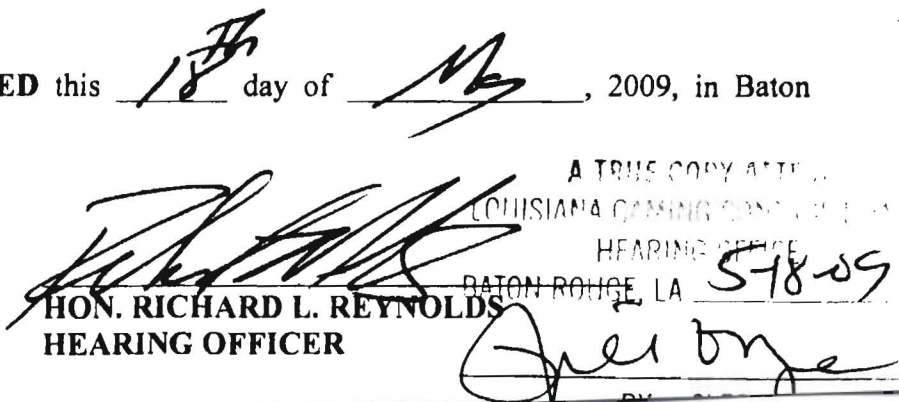 ED this 18th day of May, 2009, in Baton
A TRUE COPY
LOUISIANA GAMING
HEARING OFFICE
BATON ROUGE, LA 5-18-09
HON. RICHARD L. REYNOLDS
HEARING OFFICER